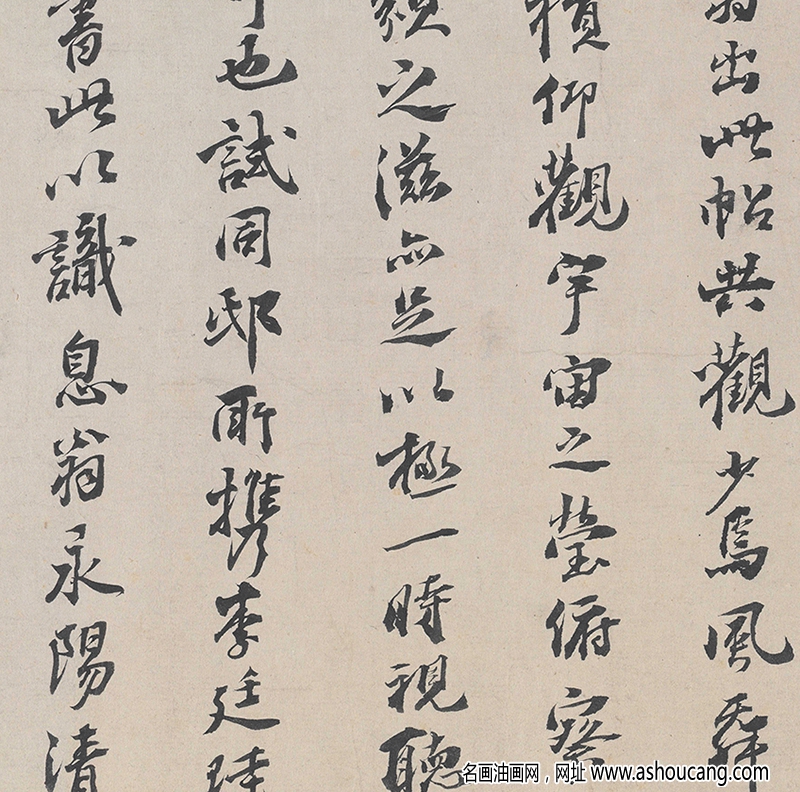 出此帖共觀少焉風舞
積仰觀宇宙之瑩俯察
顥之滋亦足以極一時視聽
也試周邸所攜李廷珪
書此以識息翁永陽清
名画油画网，网址 www.ashoucang.com